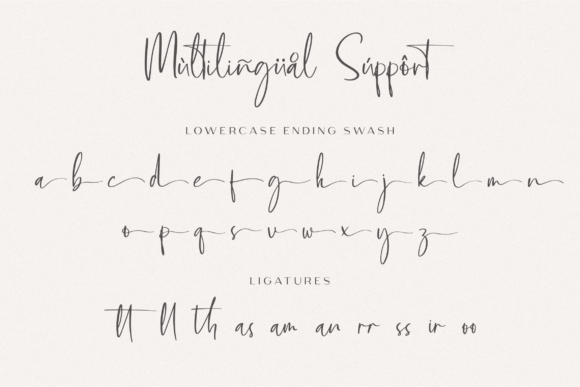 Mùltiliñgüål Súppôrt
LOWERCASE ENDING SWASH
a b c d e f g h i j k l m n
o p q s v w x y z
LIGATURES
tt ll th as am an rr ss ir oo